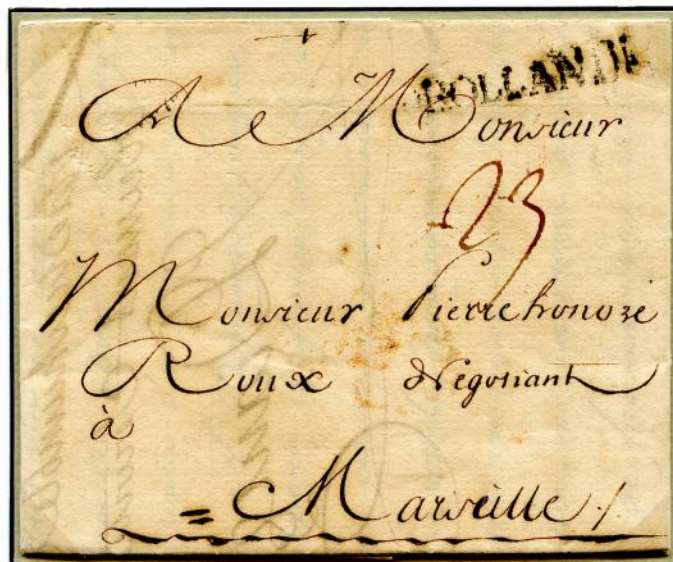 HOLLANDE
A Monsieur
23
Monsieur Pierre honoré
Roux Negotiant
à
= Marseille /.